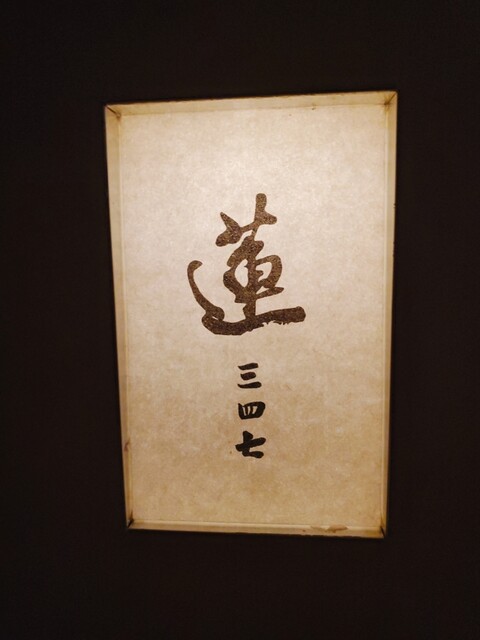 蓮
三四七